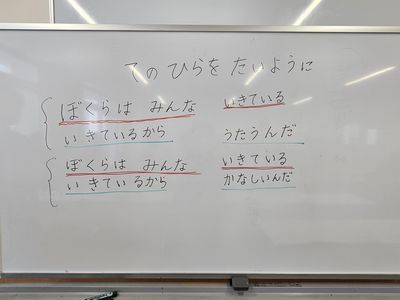 てのひらを たいように
ぼくらは みんな いきている
いきているから うたうんだ
ぼくらは みんな いきている
いきているから かなしいんだ